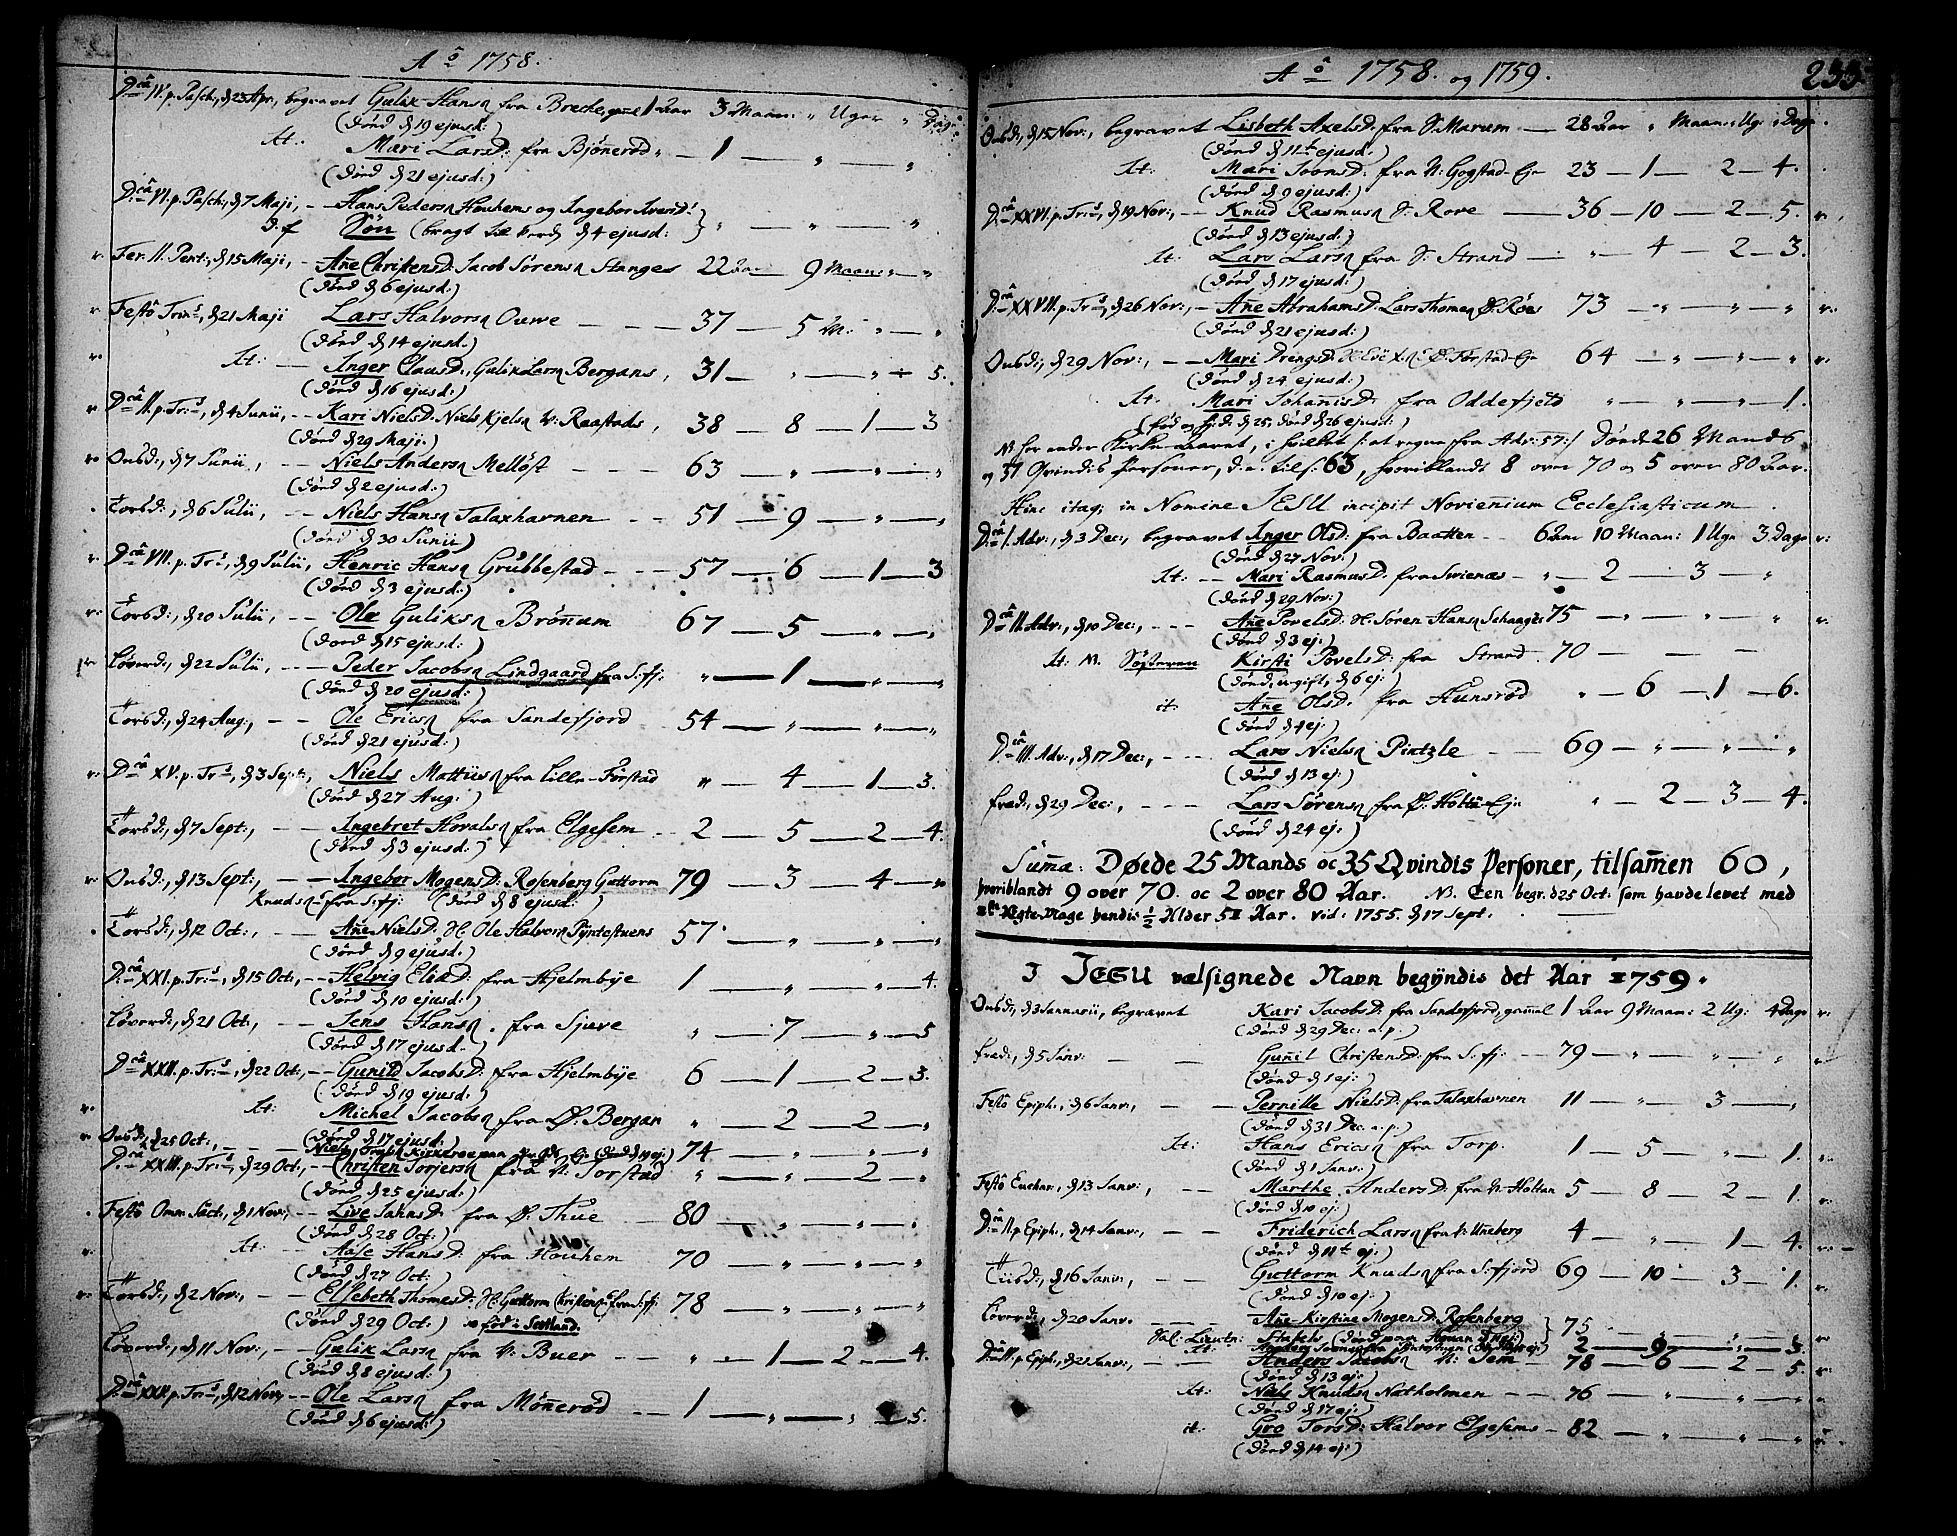 Aº 1758.
D:câ IV. p. Pasch:, d 23 Apr:, begravet Gulik Hansø fra Breche, gml 1 Aar 3 Maan: " Uger " Dage
(Død d 19 ejusd:)
It: Mari LarsD: fra Bjønerød " — 1 — " — "
(Død d 21 ejusd:)
D:câ VI. p. Pasch:, d 7 Maji, — Hans Pedersø Houhems og Ingebor IversD:
D. f Søn (bragt til Jorden d 4 ejusd: " — " — "
Fer: II. Pent:, d 15 Maji, — Ane ChristensD: Jacob Sørensø Stanges 22 Aar — 9 Maan: " — "
(Død d 6 ejusd:)
Festô Trin:s, d 21 Maji Lars Halvorsø Ouwe — 37 — 5 M: " — "
(Død d 14 ejusd:)
It: — Inger ClausD:, Gulik Larsø Bergans, 31 — " — " — 5.
(Død d 16 ejusd:)
D:câ II. p. Tr:s, d 4 Junii, — Kari NielsD: Niels Kjelsø V: Raastads, 38 — 8 — 1 — 3
(Død d 29 Maji:)
Onsd:, d 7 Junii, — Niels Andersø Melløst — 63 — " — " — "
(Død d 2 ejusd:)
Torsd:, d 6 Julii, — Niels Hansø Talaxhavnen — 51 — 9 — " — "
(Død d 30 Junii)
D:câ VII. p. Tr:s, d 9 Julii, Henric Hansø Grubbestad — 57 — 6 — 1 — 3
(Død d 3 ejusd:)
Torsd:, d 20 Julii, — Ole Guliksø Brønum 67 — 5 — " — "
(Død d 15 ejusd:)
Løverd:, d 22 Julii, — Peder Jacobsø Lindgaard fra S:fj: " — 1 — " — "
(Død d 20 ejusd:)
Torsd:, d 24 Aug:, — Ole Ericsø fra Sandefjord 54 — " — " — "
(Død d 21 ejusd:)
D:câ XV. p. Tr:s, d 3 Sept:, Niels Mattisø fra Lille-Forstad " — 4 — 1 — 3.
(Død d 27 Aug:)
Torsd:, d 7 Sept:, — Ingebret Hovalsø fra Elgesem 2 — 5 — 2 — 4.
(Død d 3 ejusd:)
Onsd:, d 13 Sept:, — Ingebor MogensD: Rosenberg Guttorm 79 — 3 — 4 — "
Knudsø fra S:fj: (Død d 8 ejusd:)
Torsd:, d 12 Oct:, — Ane NielsD: H: Ole Halvorsø Pÿntestuens 57 — " — " — "
(Død d 9 ejusd:)
D:câ XXI. p. Tr:s, d 15 Oct:, — Helvig EliæD: fra Hjelmbÿe 1 — " — " — 4.
(Død d 10 ejusd:)
Løverd:, d 21 Oct:, — Jens Hansø fra Sjuve " — 7 — " — 5
(Død d 17 ejusd:)
D:câ XXII. p. Tr:s, d 22 Oct:, — Gunild JacobsD: fra Hjelmbÿe 6 — 1 — 2 — 3.
(Død d 19 ejusd:)
It: Michel Jacobsø fra Ø: Bergan " — 2 — 2 — "
(Død d 17 ejusd:)
Onsd:, d 25 Oct:, — Niels (Død d 19 ej:) 74 — " — " — "
D:câ XXIII. p. Tr:s, d 29 Oct:, — Christen Torjersø fra N: Torstad " — " — 2 — "
(Død d 25 ejusd:)
Festô Omn: Sâct:, d 1 Nov:, — Live JahnsD: fra Ø: Thue 80 — " — " — "
(Død d 28 Oct:)
It: — Aase HansD: fra Houhem 70 — " — " — "
(Død d 27 Oct:)
Torsd:, d 2 Nov:, — Elsebeth ThomesD: H: Guttorm Christensø fra S:fj: 78 — " — " — "
(Død d 29 Oct:) er fød i Scotland.
Løverd:, d 11 Nov:, — Gulik Larsø fra V: Buer " — 1 — 2 — 4.
(Død d 8 ejusd:)
D:câ XXV. p. Tr:s, d 12 Nov:, — Ole Larsø fra Mønerød — 1 — " — " — 5.
(Død d 6 ejusd:)
Aº 1758. og 1759. 233.
Onsd:, d 15 Nov:, begravet Lisbeth AxelsD: fra S: Marum — 28 Aar " Maan: " Ug: " Dage
(Død d 11t ejusd:)
It: Mari JoonsD: fra N: Gogstad-Eje 23 — 1 — 2 — 4.
(Død d 9 ejusd:)
D:câ XXVI. p. Tr:s, d 19 Nov:, — Knud Rasmusø S: Rove — 36 — 10 — 2 — 5.
(Død d 13 ejusd:)
It: Lars Larsø fra S: Strand — " — 4 — 2 — 3.
(Død d 17 ejusd:)
D:câ XXVII. p. Tr:s, d 26 Nov:, — Ane AbrahamsD: Lars Thomesø Ø: Røes 73 — " — " — "
(Død d 21 ejusd:)
Onsd:, d 29 Nov:, — Mari DrengsD: Ø: Forstad-Eje 64 — " — " — "
(Død d 24 ejusd:)
It: Mari JohannisD: fra Oddefjeld " — " — " — 1.
(fød og Hj: D: d 25, Død d 26 ejusd:)
NB. her ender Kirke-aaret, i hvilket /: at regne fra Adv: 57 :/ Døde 26 Mands
og 37 Qvindis Personer, d. e. tils: 63, hvoriblandt 8 over 70 og 5 over 80 Aar.
Hinc itaq; in Nomine JESU incipit Noviennium Ecclesiasticum.
D:câ I. Adv:, d 3 Dec:, begravet Inger OlsD: fra Baatten — 6 Aar 10 Maan: 1 Uge 3 Dage
(Død d 27 Nov:)
It: — Mari RasmusD: fra Svienæs — " — 2 — 3 — "
(Død d 29 Nov:)
D:câ II. Adv:, d 10 Dec:, — Ane PovelsD: H: Søren Hansø Schaages 75 — " — " — "
(Død d 3 ej:)
It: NB. Søsteren Kirsti PovelsD: fra Strand 70 — — —
(Død, ugift, d 6 ej:)
it: Ane OlsD: fra Hunsrød " — 6 — 1 — 6.
(Død d 4 ej:)
D:câ III. Adv:, d 17 Dec:, — Lars Nielsø Pintzle — 69 — " — " — "
(Død d 13 ej:)
Fred:, d 29 Dec:, — Lars Sørensø fra Ø: Holtu-Eje " — 2 — 3 — 4.
(Død d 24 ej:)
Suma: Døede 25 Mands oc 35 Qvindis Personer, tilsamen 60,
hvoriblandt 9 over 70. oc 2 over 80 Aar. NB. Een begr. d 25 Oct: som havde levet med
Ægte-Mage hendis ½ Alder 51 Aar. vid: 1755. d 17 Sept.
I JESU velsignede Navn begÿndis det Aar 1759.
Onsd:, d 3 Januarii, begravet Kari JacobsD: fra Sandefjord, gammel 1 Aar 9 Maan: 2 Ug: 4 Dage
(Død d 29 Dec: a. p.)
Fred:, d 5 Janv: — Gunil ChristensD: fra S:fj: — 79 — " — " — "
(Død d 1 ej:)
Festô Epiph:, d 6 Janv:, — Pernille NielsD: fra Talaxhavnen 11 — " — 3 — "
(Død d 31 Dec: a. p.)
It: Hans Ericsø fra Torp. 1 — 5 — " — 1.
(Død d 1 Janv:)
Festô, d 13 Janv:, — Marthe AndersD: fra N: Holtan 5 — 8 — 2 — 1.
(Død d 10 ej:)
D:câ II. p. Epiph:, d 14 Janv:, — Friderich Larsø fra N: Uneberg 4 — " — 1 — 4.
(Død d 11t ej:)
Tiisd:, d 16 Janv:, — Guttorm Knudsø fra S:fjord 69 — 10 — 3 — 1.
(Død d 10 ej:)
Løverd:, d 20 Janv: — Ane-Kirstine MogensD: Rosenberg
Sal: Lieutn: Stabels (Død 11 ej:) 75 — " — " — "
It: 2 — 9 — " — 3.
D:câ III. p. Epiph:, d 21 Janv:, — Anders Jacobsø N: Jem 78 — 6 — 2 — 5.
(Død d 13 ej:)
It: Niels Knudsø Natholmen — 76 — " — " — "
(Død d 17 ej:)
it: Gro TorsD: Halvor Elgesems — 82 — " — " — "
(Død d 14 ej:)